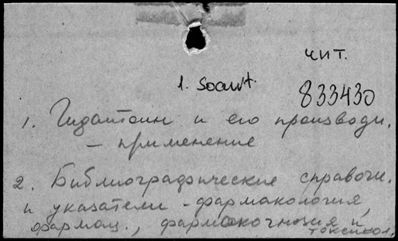 чит.
1. Soavt
833430
1. Гидантоин и его производн.
- применение
2. Библиографические справочн.
и указатели - фармакология
фармац., фармакогнозия и
токсикол.